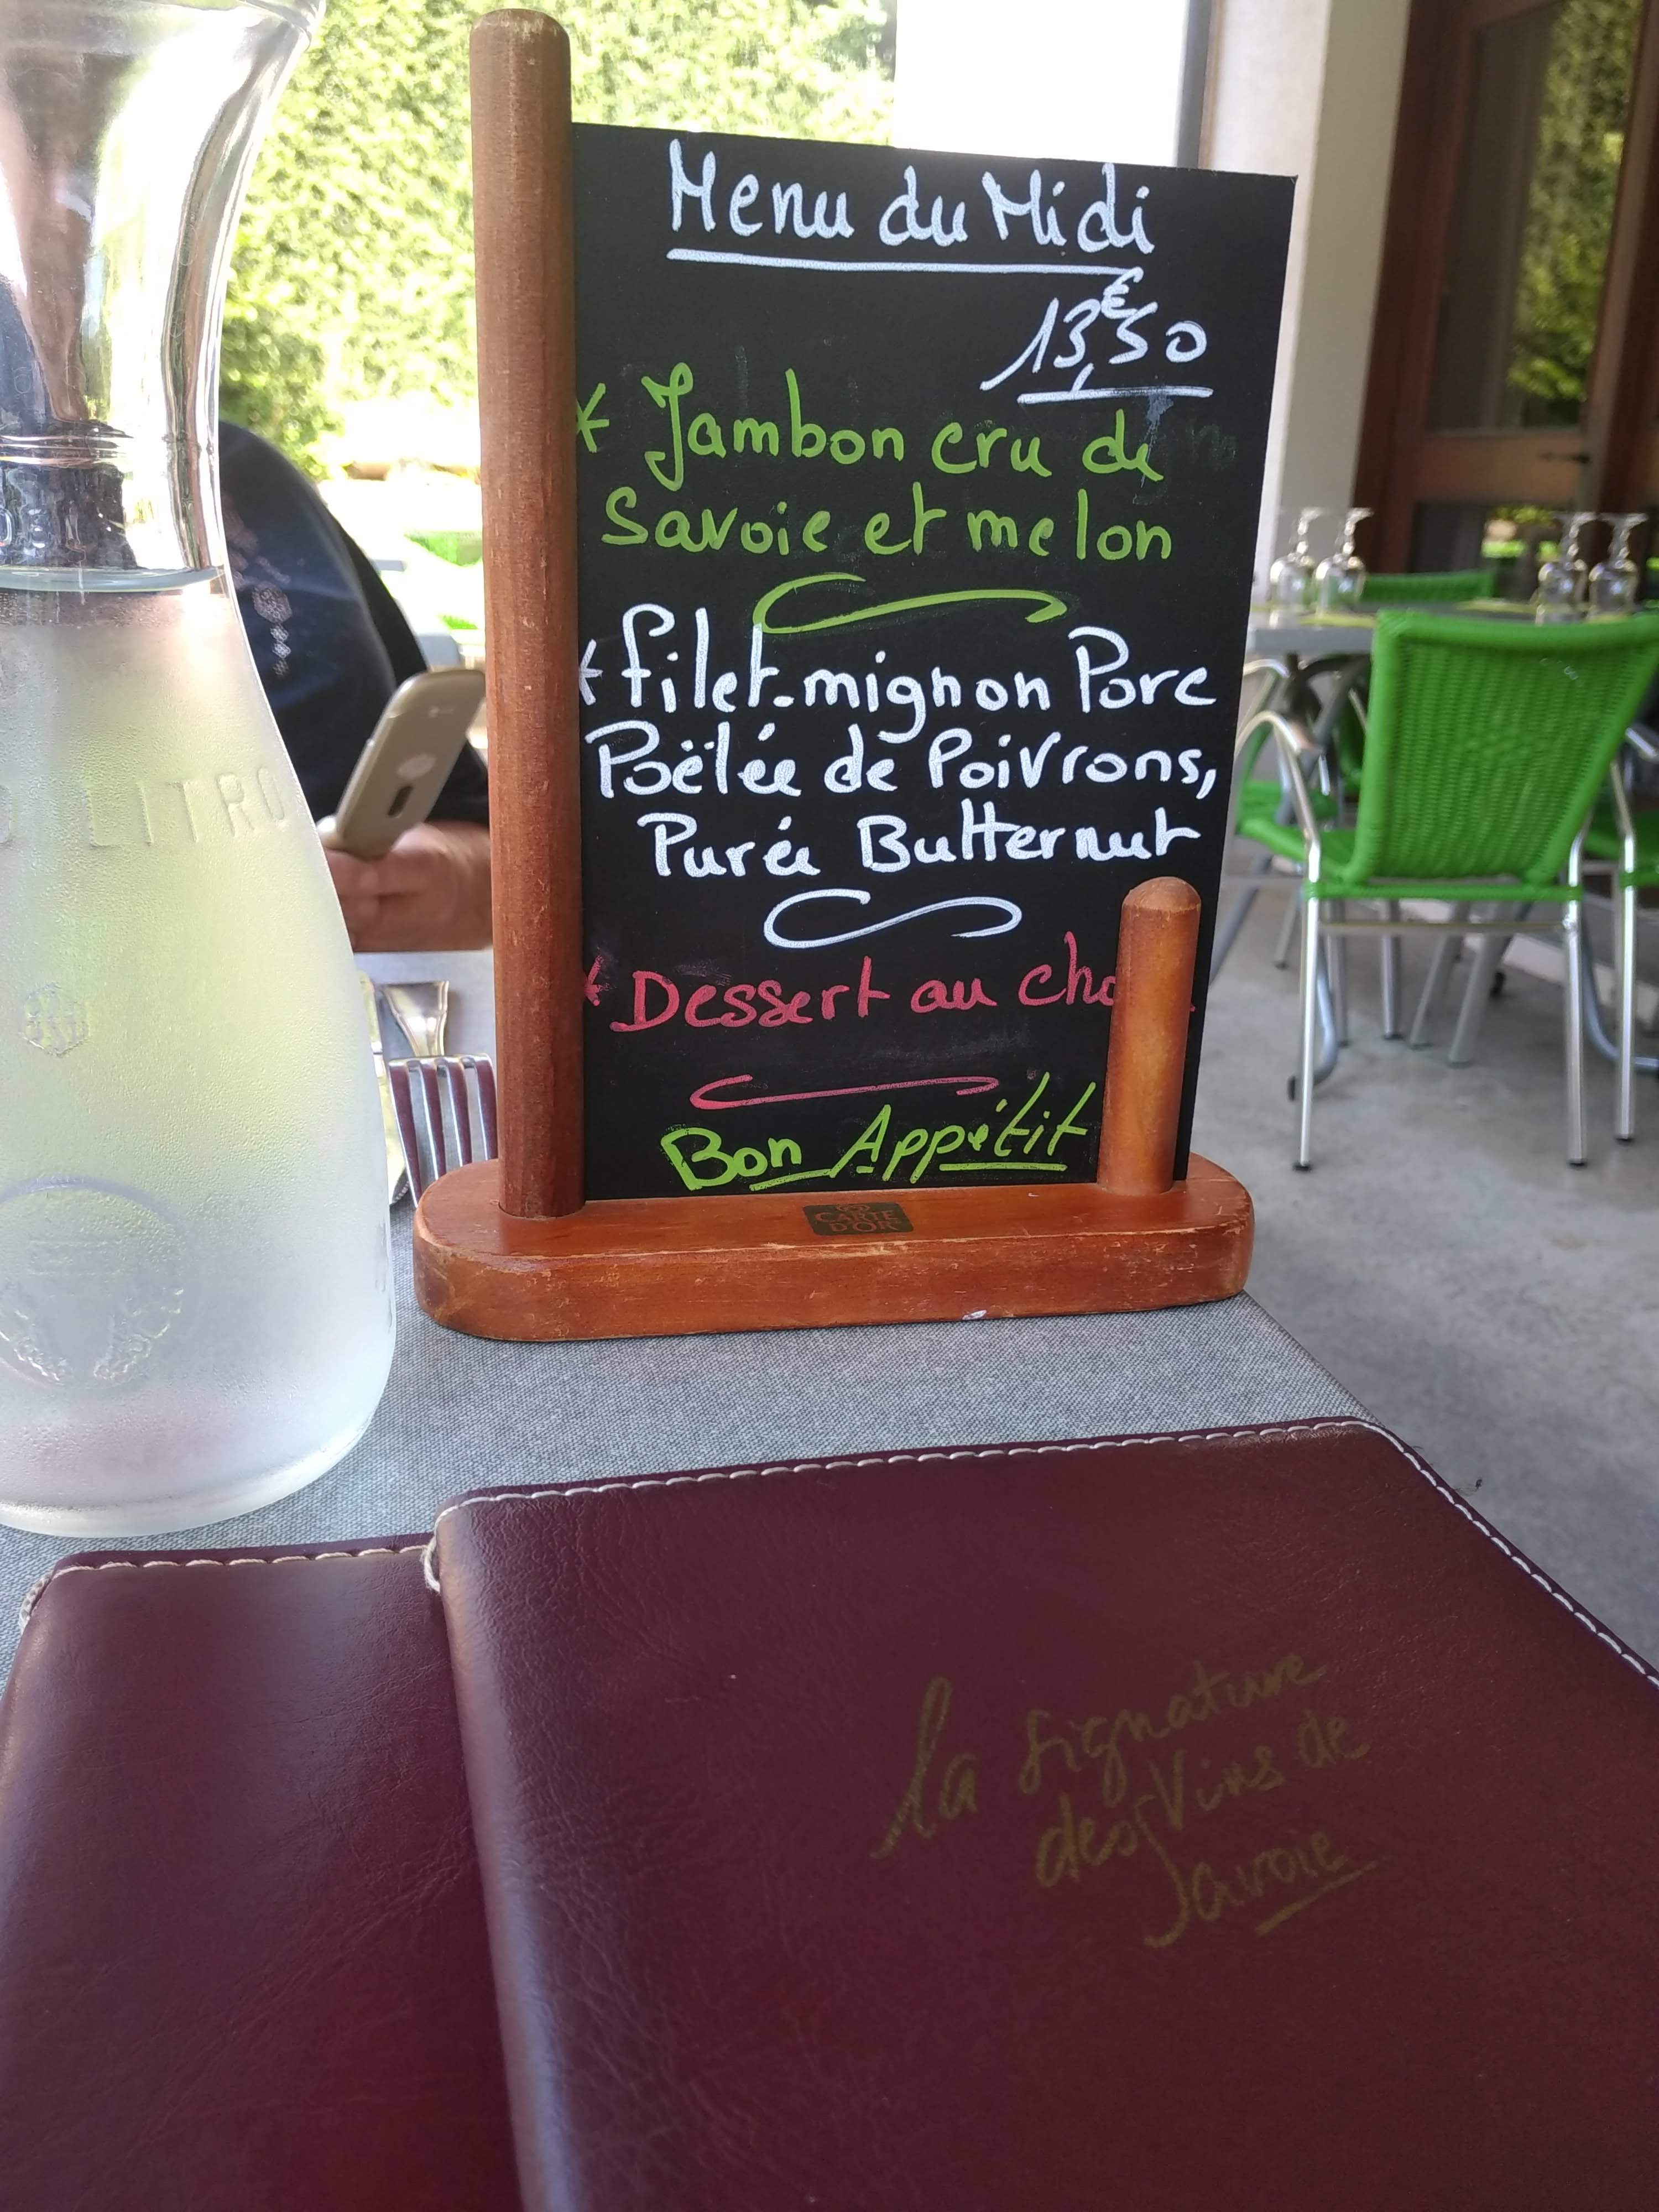 Menu du Midi
13,€50
* Jambon cru de
Savoie et melon
* filet-mignon Porc
Poëlée de Poivrons,
Purée Butternut
* Dessert au
Bon Appétit
CARTE
D'OR
LITRO
la signature
des Vins de
Savoie